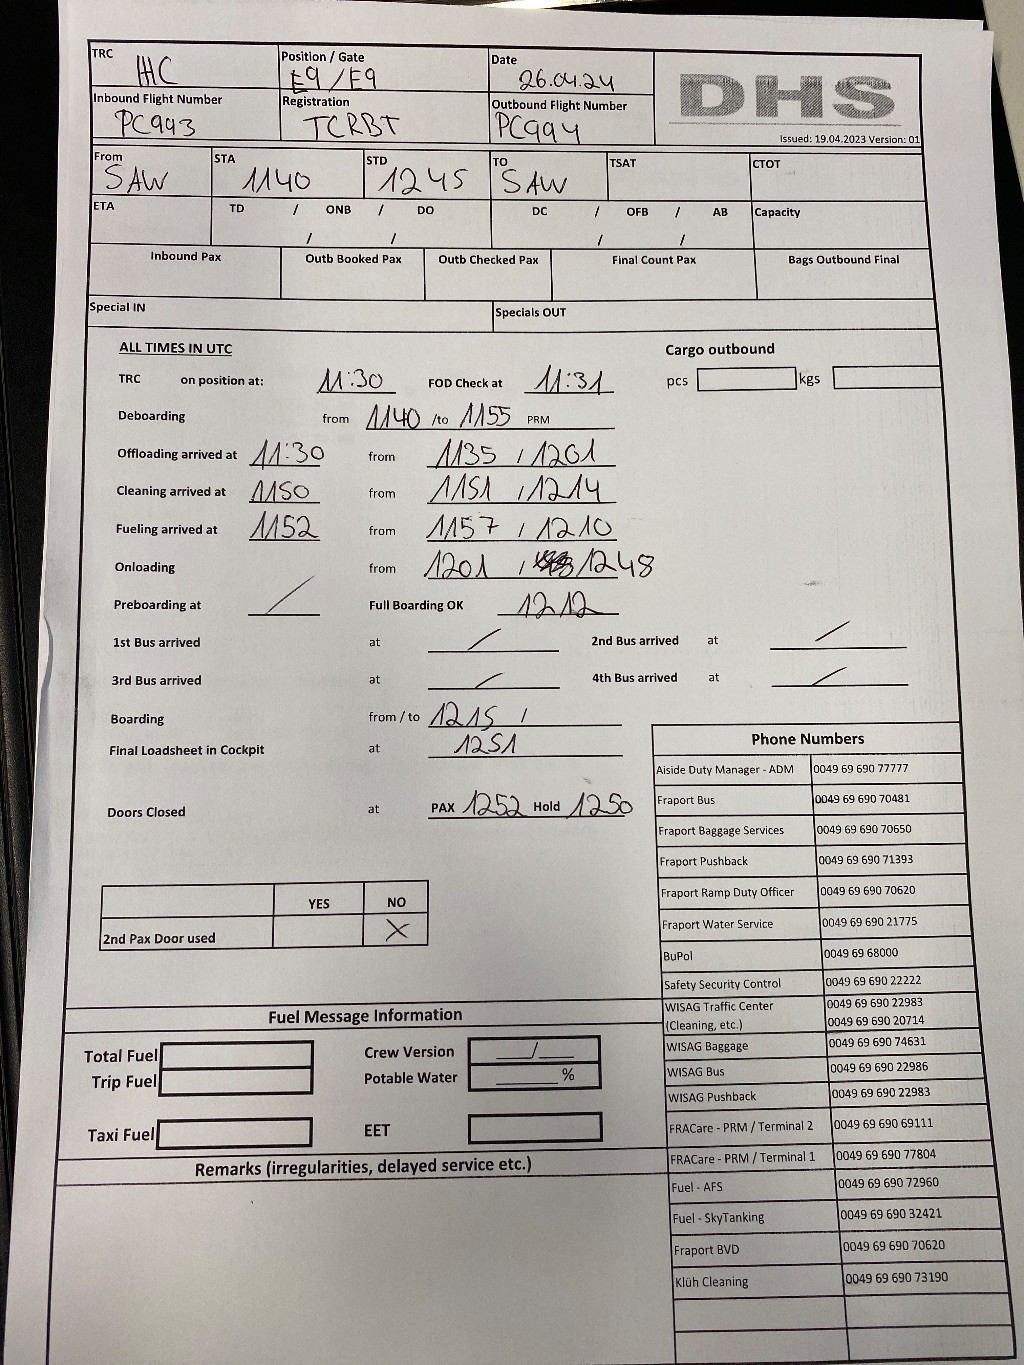 TRC HHC Position / Gate E9 / E9 Date 26.04.24 DHS
Inbound Flight Number PC993 Registration TCRBT Outbound Flight Number PC994 Issued: 19.04.2023 Version: 01
From SAW STA 1140 STD 1245 TO SAW TSAT CTOT
ETA TD / ONB / DO DC / OFB / AB Capacity
/ / / /
Inbound Pax Outb Booked Pax Outb Checked Pax Final Count Pax Bags Outbound Final
Special IN Specials OUT
ALL TIMES IN UTC Cargo outbound
TRC on position at: 11:30 FOD Check at 11:31 pcs kgs
Deboarding from 1140 /to 1155 PRM
Offloading arrived at 11:30 from 1135 / 1201
Cleaning arrived at 1150 from 1151 / 1214
Fueling arrived at 1152 from 1157 / 1210
Onloading from 1201 / 1248
Preboarding at / Full Boarding OK 1212
1st Bus arrived at / 2nd Bus arrived at /
3rd Bus arrived at / 4th Bus arrived at /
Boarding from / to 1215 /
Final Loadsheet in Cockpit at 1251
Doors Closed at PAX 1252 Hold 1250
YES NO
2nd Pax Door used X
Phone Numbers
Aiside Duty Manager - ADM 0049 69 690 77777
Fraport Bus 0049 69 690 70481
Fraport Baggage Services 0049 69 690 70650
Fraport Pushback 0049 69 690 71393
Fraport Ramp Duty Officer 0049 69 690 70620
Fraport Water Service 0049 69 690 21775
BuPol 0049 69 68000
Safety Security Control 0049 69 690 22222
WISAG Traffic Center 0049 69 690 22983
(Cleaning, etc.) 0049 69 690 20714
WISAG Baggage 0049 69 690 74631
WISAG Bus 0049 69 690 22986
WISAG Pushback 0049 69 690 22983
FRACare - PRM / Terminal 2 0049 69 690 69111
FRACare - PRM / Terminal 1 0049 69 690 77804
Fuel - AFS 0049 69 690 72960
Fuel - SkyTanking 0049 69 690 32421
Fraport BVD 0049 69 690 70620
Klüh Cleaning 0049 69 690 73190
Fuel Message Information
Total Fuel Crew Version /
Trip Fuel Potable Water %
Taxi Fuel EET
Remarks (irregularities, delayed service etc.)